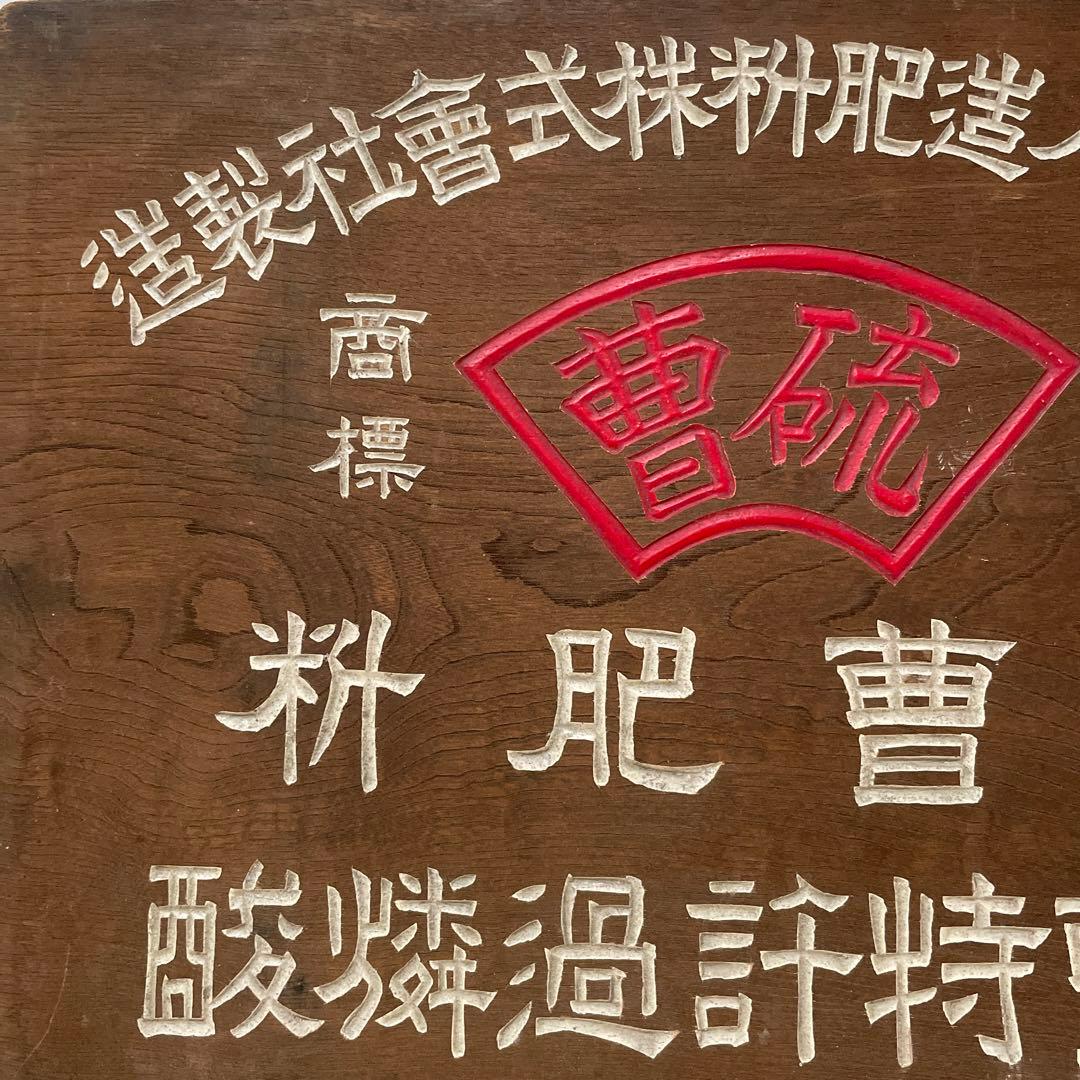 造肥料株式會社製造
硫曹
商標
曹肥料
特許過燐酸